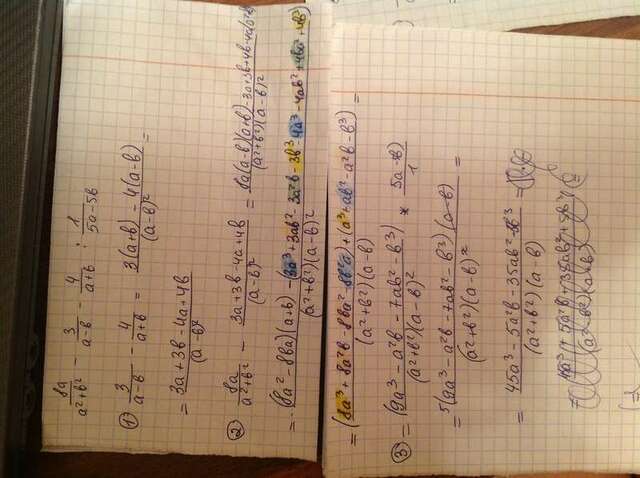 8a/(a²+b²) - 3/(a-b) - 4/(a+b) : 1/(5a-5b)
① 3/(a-b) - 4/(a+b) = (3(a+b) - 4(a-b))/(a-b)² =
= (3a+3b-4a+4b)/(a-b)²
② 8a/(a²+b²) - (3a+3b-4a+4b)/(a-b)² = (8a(a-b)(a+b) - 3a+3b+4b-4a(a²+b²))/((a²+b²)(a-b)²)
= ((8a²-8ba)(a+b) - (3a³+3ab²-3a²b-3b³-4a³-4ab²+4ba²+4b³))/((a²+b²)(a-b)²)
= (8a³+8a²b-8ba²-8b²a)+(a³+ab²-a²b-b³)/((a²+b²)(a-b)) =
③ = (9a³-a²b-7ab²-b³)/((a²+b²)(a-b)²) * (5a-b)/1
= 5(9a³-a²b-7ab²-b³)(a-b)/((a²+b²)(a-b)²) =
= (45a³-5a²b-35ab²-b³)/((a²+b²)(a-b)) =